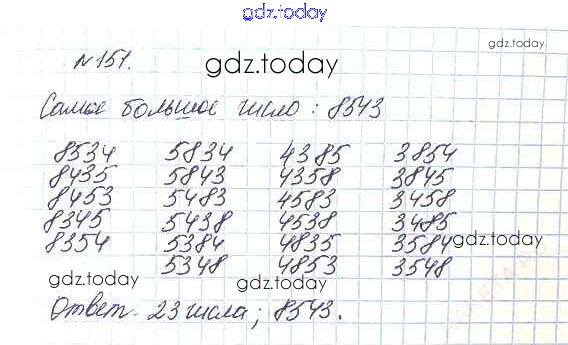 gdz.today
№151.
gdz.today
gdz.today
Самое большое число: 8543
8534 5834 4385 3854
8435 5843 4358 3845
8453 5483 4583 3458
8345 5438 4538 3485
8354 5384 4835 3584 gdz.today
5348 4853 3548
gdz.today gdz.today
Ответ. 23 числа; 8543.